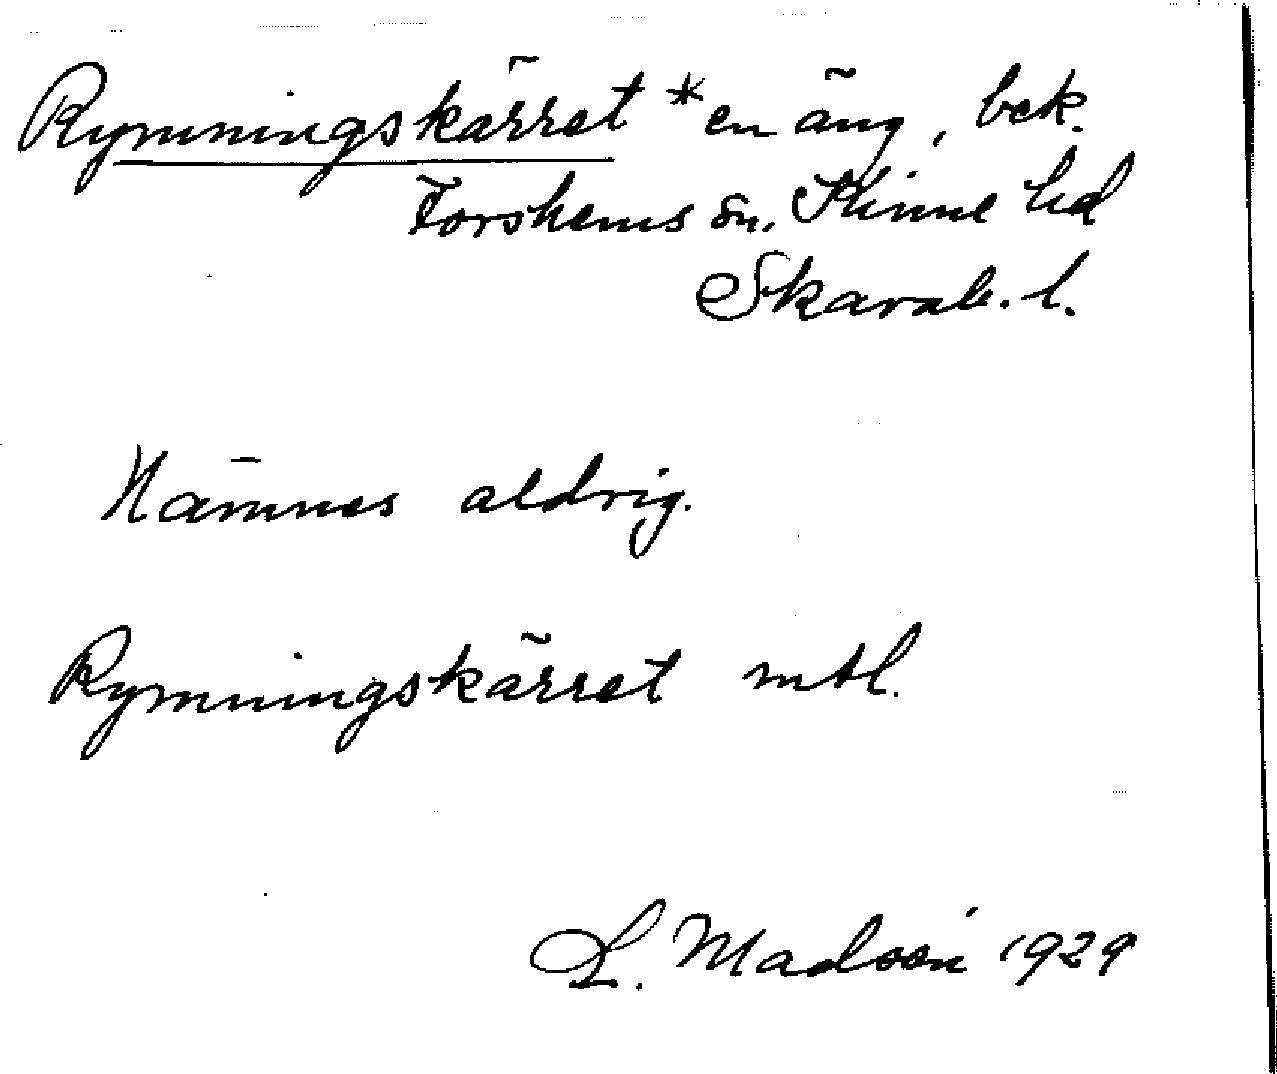 Rymningskärret * en äng, bek.
Forshems sn. Kinne hd
Skarab. l.
Nämnes aldrig.
Rymningskärret mtl.
L. Madsén 1929